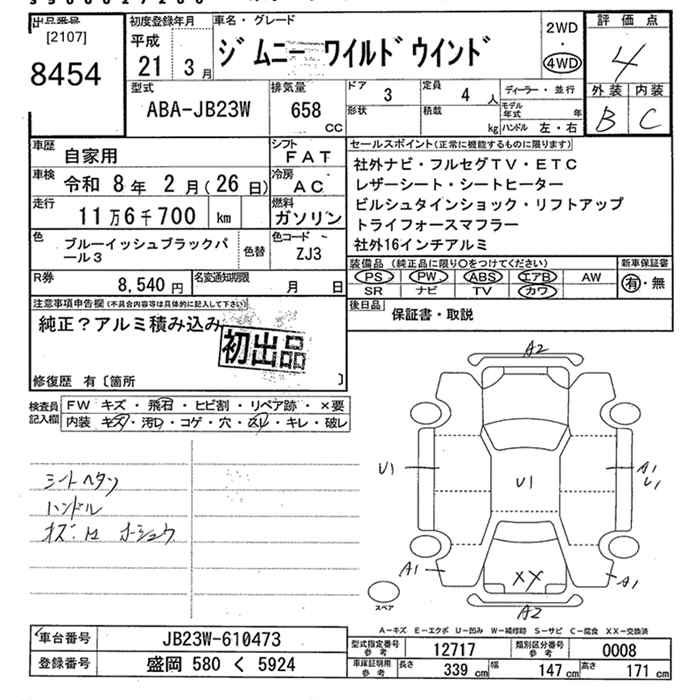 出品番号
[2107]
8454
初度登録年月
平成
21 3月
車名・グレード
ジムニー ワイルドウインド
2WD
・
4WD
評価点
4
外装 内装
B C
型式
ABA-JB23W
排気量
658
CC
ドア
3
定員
4 人
形状
積載
kg
ディーラー・並行
モデル年式 年
ハンドル 左・右
車歴
自家用
シフト
FAT
車検
令和 8年 2月(26日)
冷房
AC
走行
11万6千700 km
燃料
ガソリン
色
ブルーイッシュブラックパール3
色替
色コード
ZJ3
R券
8,540円
名変通知期限
月 日
セールスポイント(正常に機能するものに限ります)
社外ナビ・フルセグTV・ETC
レザーシート・シートヒーター
ビルシュタインショック・リフトアップ
トライフォースマフラー
社外16インチアルミ
装備品(純正品に限り○をつけてください)
新車保証書
PS PW ABS エアB AW
SR ナビ TV カワ
有・無
後日品
保証書・取説
注意事項申告欄(不具合内容等は具体的に記入して下さい)
純正?アルミ積み込み
初出品
修復歴 有〔箇所 〕
検査員記入欄
FW キズ・飛石・ヒビ割・リペア跡・×要
内装 キズ・汚レ・コゲ・穴・スレ・キレ・破レ
シートヘタリ
ハンドル
A2
U1
U1
A1
U1
A1
XX
A1
スペア
A2
A-キズ E-エクボ U-凹み W-補修跡 S-サビ C-腐食 XX-交換済
車台番号
JB23W-610473
登録番号
盛岡 580 く 5924
型式指定番号
参考
12717
類別区分番号
参考
0008
車庫証明用
参考
長さ 339 cm
幅 147 cm
高さ 171 cm